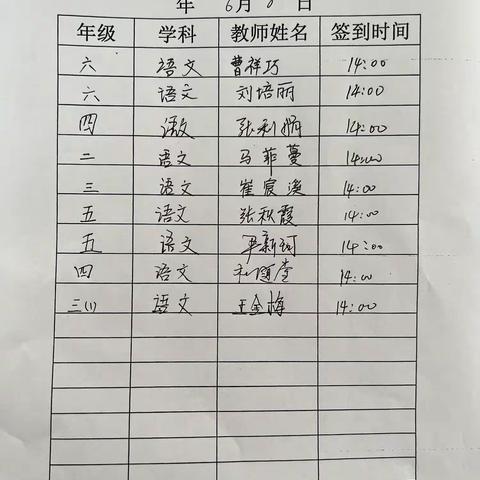 年 6月8日
年级 学科 教师姓名 签到时间
六 语文 曹祥巧 14:00
六 语文 刘培丽 14:00
四 语文 张利娟 14:00
二 语文 马菲蔓 14:00
三 语文 崔宸溪 14:00
五 语文 张秋霞 14:00
五 语文 14:00
四 语文 14:00
三(1) 语文 王金梅 14:00